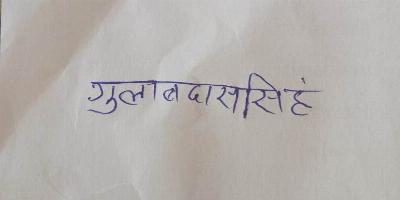 गुलाबदाससिहं